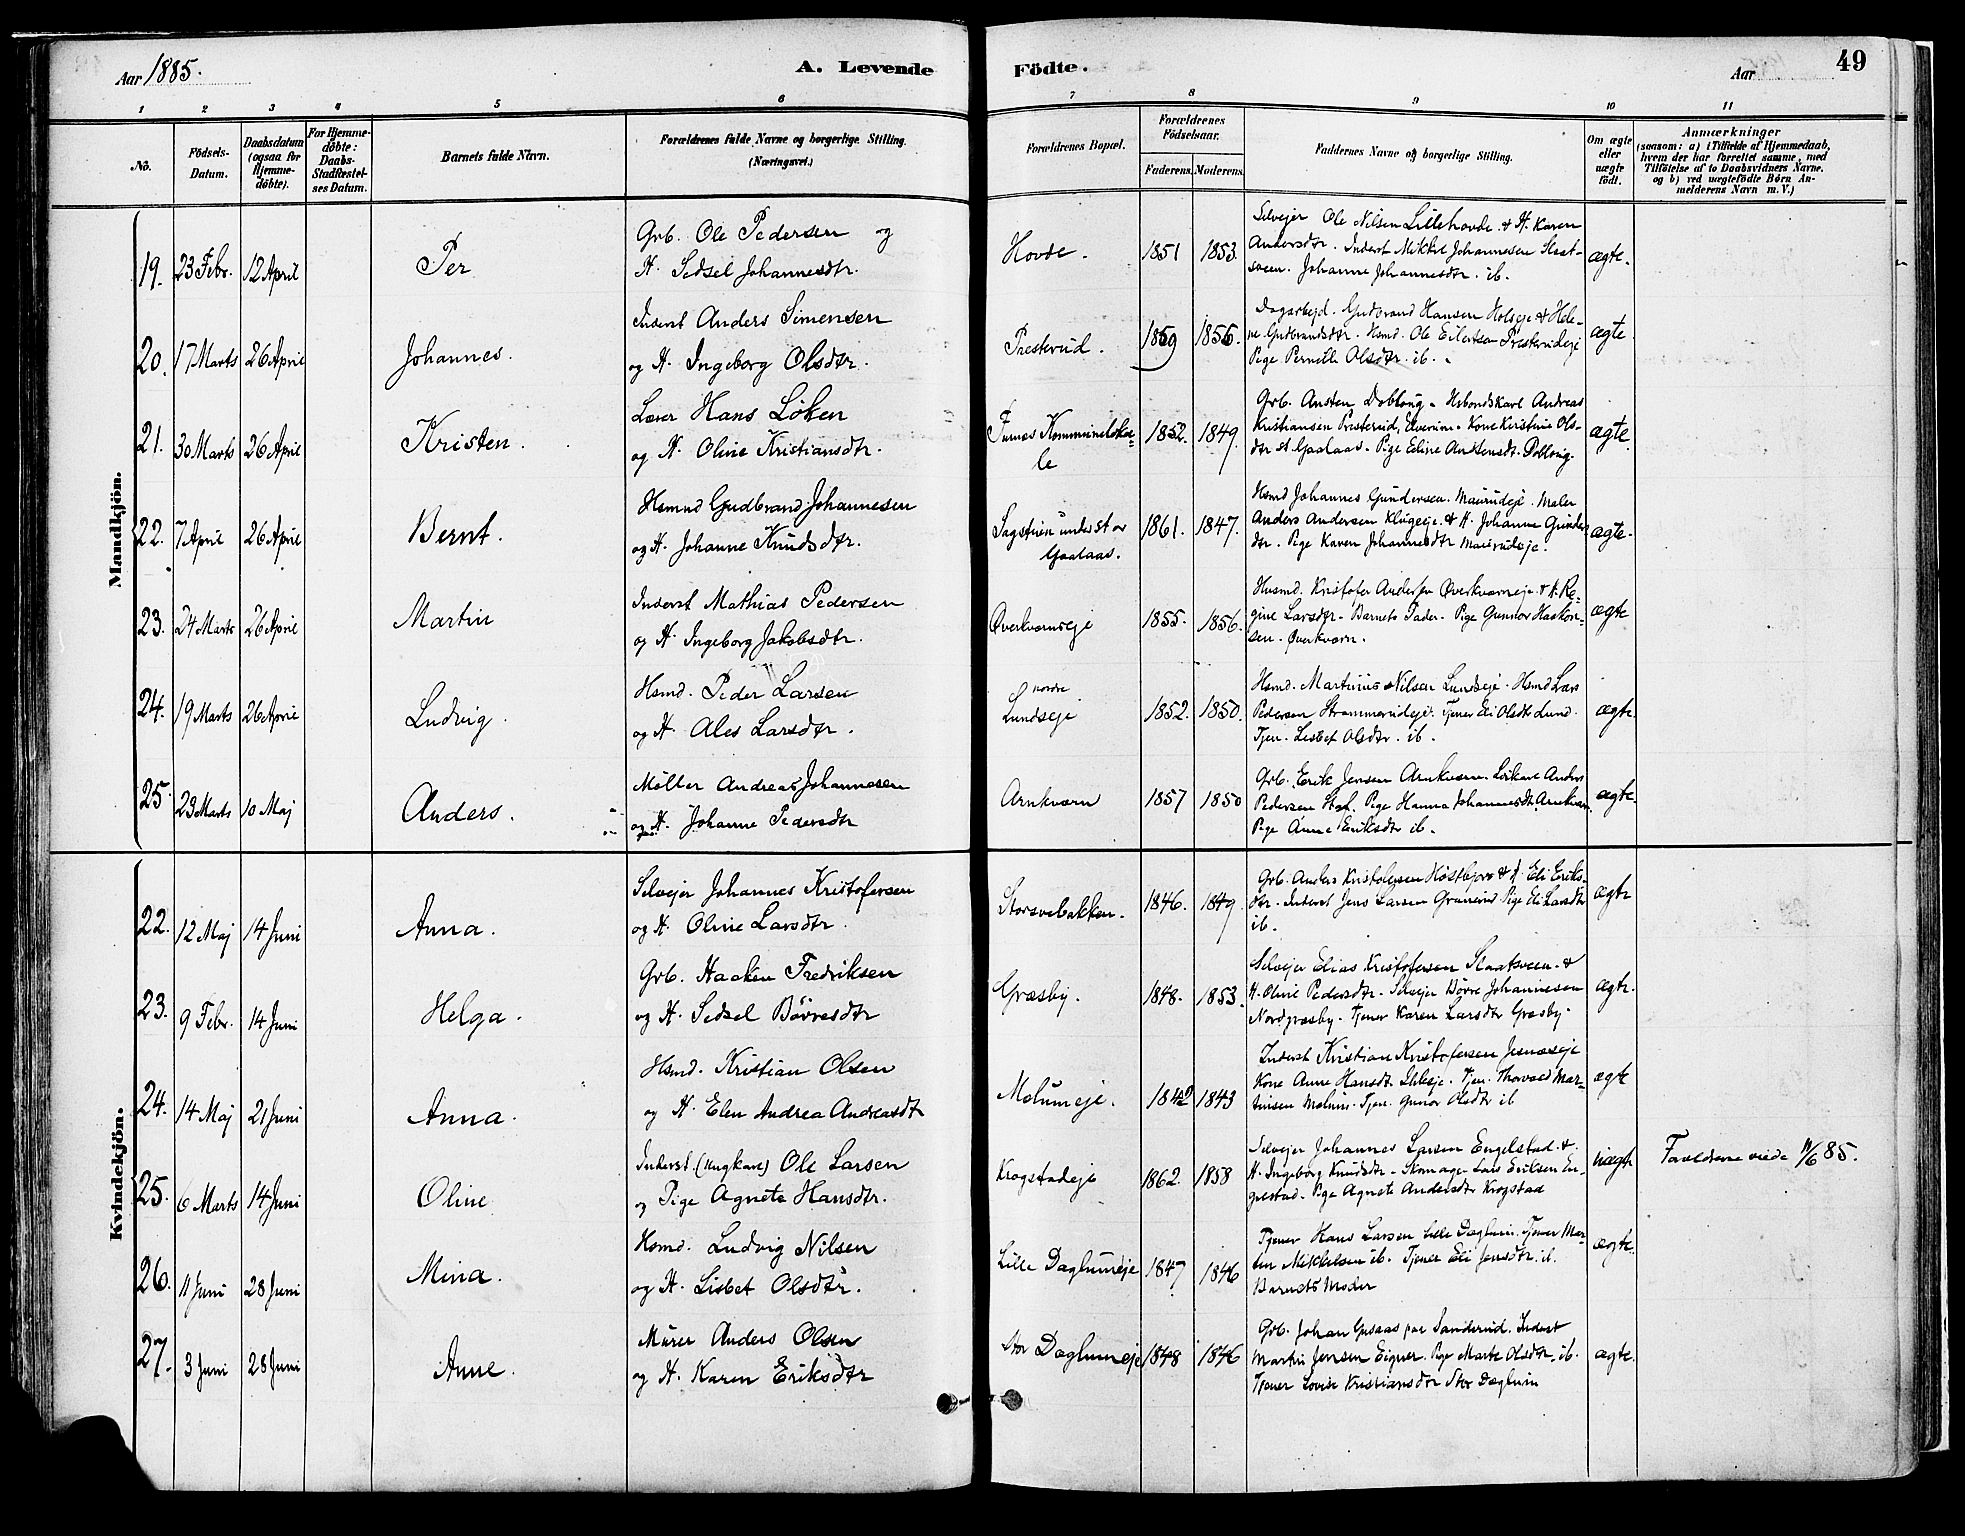 Aar 1885.
A. Levende Födte.
Aar
49
1 2 3 4 5 6 7 8 9 10 11
No.
Födsels-Datum.
Daabsdatum (ogsaa for Hjemme-døbte).
For Hjemme-døbte: Daabs-Stadfæstel-ses Datum.
Barnets fulde Navn.
Forældrenes fulde Navne og borgerlige Stilling. (Næringsvei.)
Forældrenes Bopæl.
Forældrenes Födselsaar.
Faderens. Moderens.
Faddernes Navne og borgerlige Stilling.
Om ægte eller uægte født.
Anmærkninger
(saasom: a) i Tilfælde af Hjemmedaab, hvem der har forrettet samme, med Tilföielse af to Daabsvidners Navne, og b) ved uægtefödte Börn An-melderens Navn m. V.)
Mandkjön.
19. 23 Febr. 12 April Per Grb. Ole Pedersen og
H. Sidsel Johannesdtr. Hovde. 1851 1853.
Selveier Ole Nilsen Lillehovde & H. Karen
Andersdtr. Inderst Mikkel Johannesen
Johanne Johannesdtr. ib. ægte.
20. 17 Marts 26 April Johannes. Inderst Anders Simensen
og H. Ingeborg Olsdtr. Presterud. 1859 1856.
Dagarbejd. Gudbrand Hansen Holseje & Hele-
ne Gudbrandsdtr. Hsmd. Ole Eilertsen Presterudeje
Pige Pernelle Olsdtr. ib. ægte.
21. 30 Marts 26 April Kristen. Lærer Hans Løken
og H. Oline Kristiansdtr. Furnes Kommunelokale 1852. 1849.
Grb. Austen Dobloug. Husbondskarl Andreas
Kristiansen Presterud, Elverum. Kone Kirstine Ols-
dtr. st. Gaalaas. Pige Eline Austensdt. Dobloug. ægte.
22. 7 April 26 April Bernt. Hsmnd Gudbrand Johannesen
og H. Johanne Knudsdtr. Sagstuen under stor Gaalaas. 1861. 1847.
Hsmd Johannes Gundersen. Maurudeje. Maler
Anders Andersen Klugeje & H. Johanne Gunders
dtr. Pige Karen Johannesdtr Maurudeje. ægte.
23. 24 Marts 26 April Martin Inderst Mathias Pedersen
og H. Ingeborg Jakobsdtr. Øverkværnseje 1855. 1856.
Husmd. Kristofer Andersen Øverkværneje & H. Re-
gine Larsdtr. Barnets Fader. Pige Gunnor Haakon-
sen. Øverkværn. ægte
24. 19 Marts 26 April Ludvig. Hsmd. Peder Larsen
og H. Ales Larsdtr. nordre Lundseje 1852. 1850.
Hsmd. Martinus Nilsen Lundseje. Hsmd Lars
Pedersen Strammerudeje. Tjener Eli Olsdtr Lund.
Tjen. Lisbet Olsdtr. ib. ægte.
25. 23 Marts 10 Maj Anders. Møller Andreas Johannesen
og H. Johanne Pedersdtr Arnkværn 1857 1850
Grb. Erik Jensen Arnkværn. Anders
Pedersen Pige Hanna Johannesdtr Arnkværn.
Pige Anne Eriksdtr ib. ægte.
Kvindekjön.
22. 12 Maj 14 Juni Anna. Selvejer Johannes Kristofersen
og H. Oline Larsdtr. Storsvebakken. 1846. 1849.
Grb. Anders Kristofersen Høstbjør & H. Eli Eriks-
dtr. Inderst Jens Larsen Granerud Pige Eli Larsdtr
ib. ægte
23. 9 Febr. 14 Juni Helga. Grb. Haaken Fredriksen
og H. Sidsel Børresdtr Græsby. 1848. 1853.
Selvejer Elias Kristofersen Slaatsveen &
H. Oline Pedersdtr. Selvejer Børre Johannesen
Nordgræsby. Tjener Karen Larsdtr Græsby. ægte.
24. 14 Maj 21 Juni Anna. Hsmd. Kristian Olsen
og H. Elen Andrea Andreasdtr Melumeje. 1842 1843
Inderst Kristian Kristofersen Jesneseje
Kone Anne Hansdtr. Ihleseje. Tjen. Thorvald Mar-
tinsen Melum. Tjen. Gunor Olsdtr ib ægte
25. 6 Marts 14 Juni Oline Inderst (Ungkarl) Ole Larsen
og Pige Agnete Hansdtr. Krogstadeje 1862. 1858
Selvejer Johannes Larsen Engelstad. &
H. Ingeborg Knudsdtr. Skomager Lars Eriksen En-
gelstad. Pige Agnete Andersdtr Krogstad uægte Forældrene viede 11/6 85.
26. 11 Juni 28 Juni Mina. Hsmd. Ludvig Nilsen
og H. Lisbet Olsdtr. Lille Daglumeje 1847 1846
Tjener Hans Larsen Lille Daglum. Tjener Mar-
tin Mikkelsen ib. Tjener Eli Jensdtr. ib.
Barnets Moder ægte.
27. 3 Juni 28 Juni Anne. Murer Anders Olsen
og H. Karen Eriksdtr Stor Daglumeje 1848 1846
Grb. Johan Gusaas paa Sanderud. Inderst
Martin Jensen Eigner. Pige Marte Olsdtr. ib.
Tjener Lovise Kristiansdtr Stor Daglum ægte.